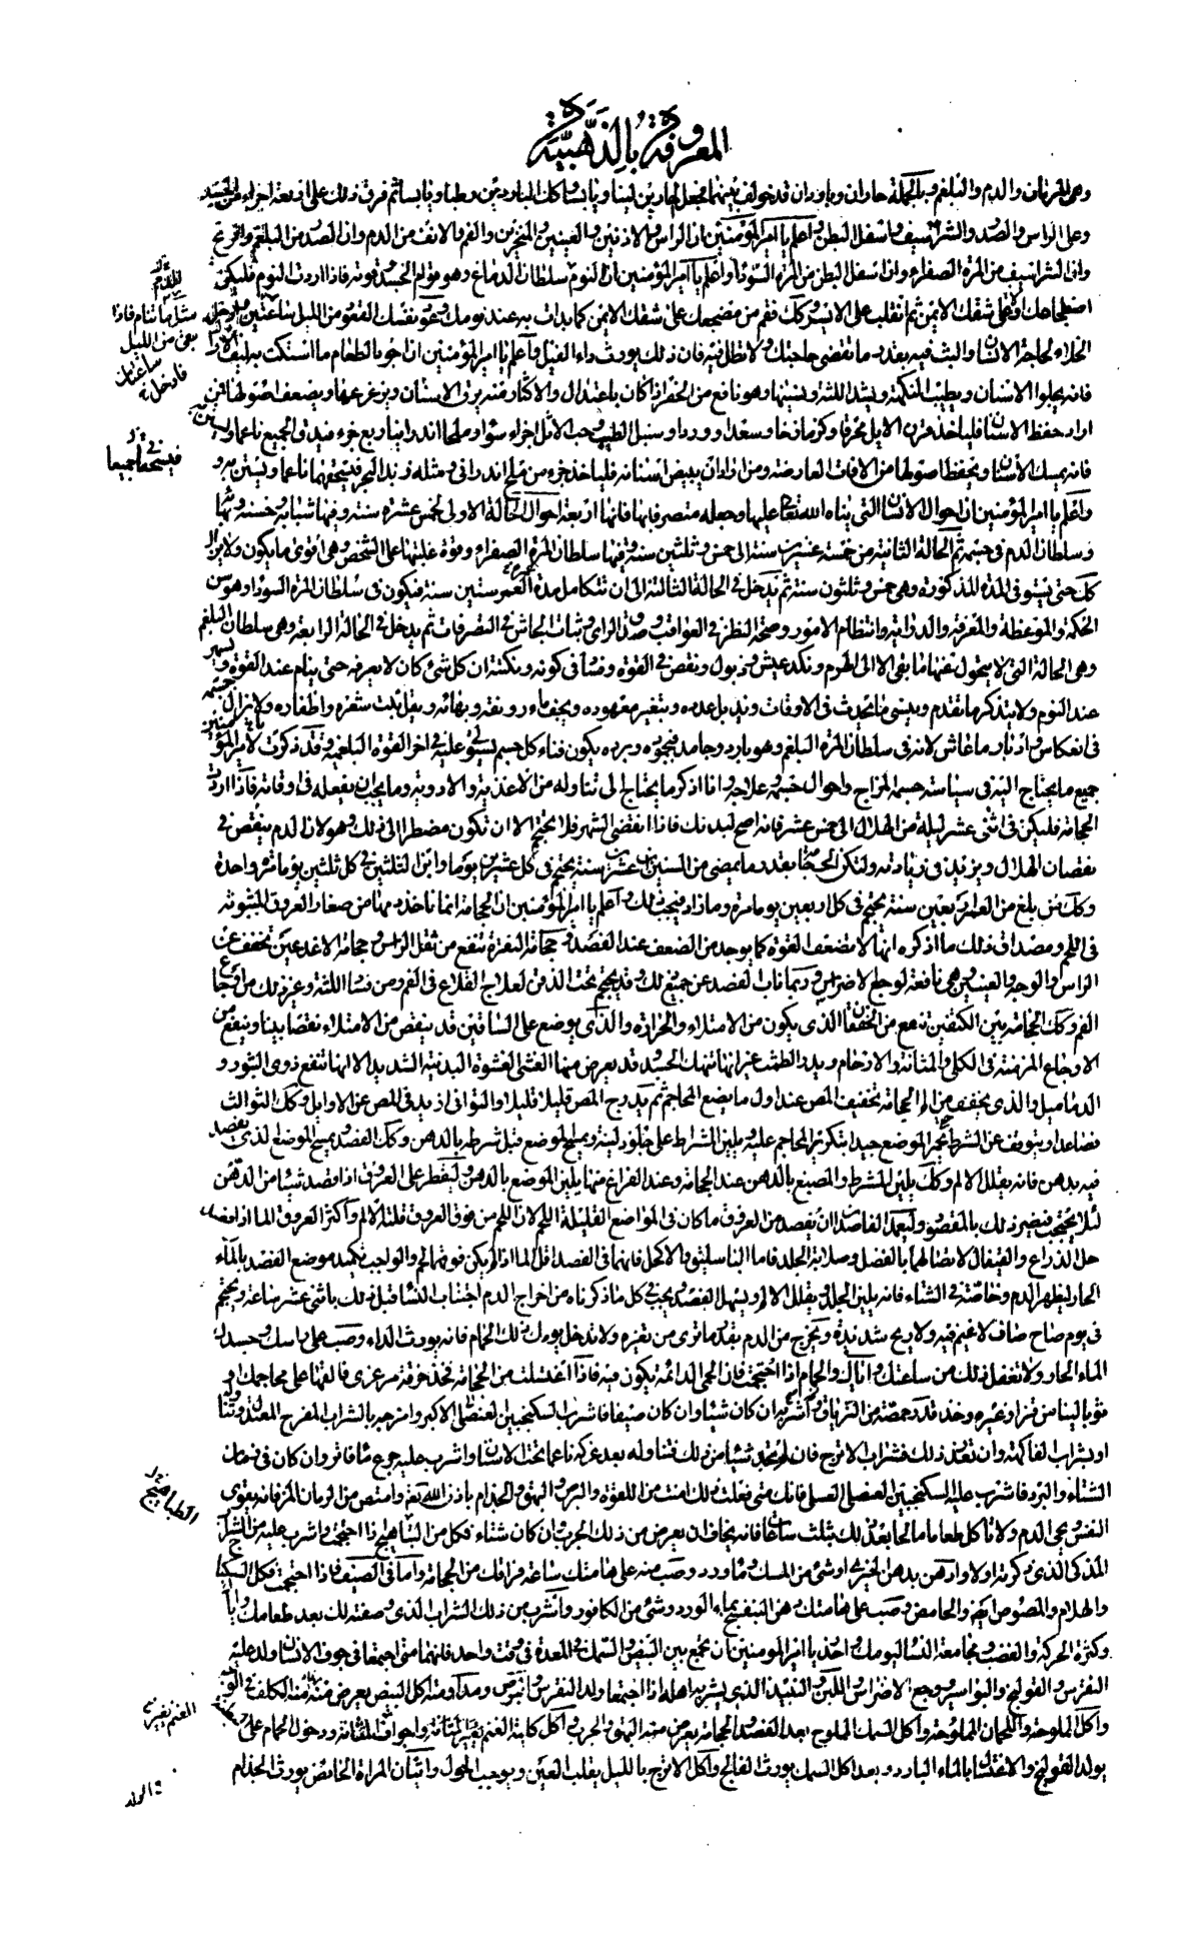 المعروفة بالذهبية
وهي المرتان والدم والبلغم وبالجملة حاران وباردان قد خولف بينهما فجعل الحارين لينا ويابسا وكك الباردين رطبا ويابسا ثم فرق ذلك على اربعة اجزاء من الجسد
وعلى الراس والصدر والشراسيف واسفل البطن واعلم يا امير المؤمنين ان الراس والاذنين والعينين والمنخرين والفم والانف من الدم وان الصدر من البلغم والريح
وان الشراسيف من المرة الصفراء وان اسفل البطن من المرة السوداء واعلم يا امير المؤمنين ان النوم سلطان الدماغ وهو قوام الجسد وقوته فاذا اردت النوم فليكن
اضطجاعك اولا على شقك الايمن ثم انقلب على الايسر وكك فقم من مضجعك على شقك الايمن كما بدات به عند نومك وعود نفسك القعود من الليل ساعتين
الخلاء لحاجة الانسان والبث فيه بقدر ما تقضى حاجتك ولا تطل فيه فان ذلك يورث داء الفيل واعلم يا امير المؤمنين ان اجود الطعام ما استكت به ليف الاراك
فانه يجلوا الاسنان ويطيب النكهة ويشد اللثة ويسننها وهو نافع من الحفر اذا كان باعتدال والاكثار منه يرق الاسنان ويزعزعها ويضعف اصولها فمن
اراد حفظ الاسنان فلياخذ قرن الايل محرقا وكزمازجا وسعدا ووردا وسنبل الطيب وحب الاثل اجزاء سواء وملحا اندرانيا ربع جزء فيدق الجميع ناعما ويستن به
فانه يمسك الاسنان ويحفظ اصولها من الافات العارضة ومن اراد ان يبيض اسنانه فلياخذ جزء من ملح اندراني ومثله زبد البحر فيسحقهما ناعما ويستن به
واعلم يا امير المؤمنين ان احوال الانسان التي بناه الله تعالى عليها وجعله متصرفا بها فانها اربعة احوال الحالة الاولى لخمس عشرة سنة وفيها شبابه وحسنه وبهاؤه
وسلطان الدم في جسمه ثم الحالة الثانية من خمسة عشرين سنة الى خمس وثلثين سنة وفيها سلطان المرة الصفراء وقوة غلبتها على الشخص وهي اقوى ما يكون ولا يزال
كك حتى يستوفى المدة المذكورة وهي خمس وثلثون سنة ثم يدخل في الحالة الثالثة الى ان تتكامل مدة العمر ستين سنة فيكون في سلطان المرة السوداء وهو سن
الحكمة والموعظة والمعرفة والدراية وانتظام الامور وصحة النظر في العواقب وصدق الراي وثبات الجاش في التصرفات ثم يدخل في الحالة الرابعة وهي سلطان البلغم
وهي الحالة التي لا يتحول عنها ما بقى الا الى الهرم ونكد عيش وذبول ونقص في القوة وفساد في كونه ونكتته ان كل شئ كان لا يعرفه حتى ينام عند القوة ويسهر
عند النوم ولا يتذكر ما تقدم وينسى ما يحدث في الاوقات ويذبل عوده ويتغير معهوده ويجف ماء رونقه وبهائه ويقل نبت شعره واظفاره ولا يزال جسمه
في انعكاس وادبار ما عاش لانه في سلطان المرة البلغم وهو بارد وجامد فبجموده وبرده يكون فناء كل جسم يستولى عليه في اخر القوة البلغمية وقد ذكرت لامير المؤمنين
جميع ما يحتاج اليه في سياسة جسمه المزاج واحوال جسمه وعلاجه وانا اذكر ما يحتاج الى تناوله من الاغذية والادوية وما يجب ان يفعله في اوقاته فاذا اردت
الحجامة فليكن في اثنى عشر ليلة من الهلال الى خمس عشر فانه اصح لبدنك فاذا انقضى الشهر فلا تحتجم الا ان تكون مضطرا الى ذلك وهو لان الدم ينقص في
نقصان الهلال ويزيد في زيادته ولتكن الحجامة بقدر ما يمضى من السنين ابن عشرين سنة يحتجم في كل عشرين يوما وابن الثلثين في كل ثلثين يوما مرة واحدة
وكك من بلغ من العمر اربعين سنة يحتجم في كل اربعين يوما مرة وما زاد فبحسب ذلك واعلم يا امير المؤمنين ان الحجامة انما تاخذ دمها من صغار العروق المبثوثة
في اللحم ومصداق ذلك ما اذكره انها لا تضعف القوة كما يوجد من الضعف عند الفصد وحجامة النقرة تنفع من ثقل الراس وحجامة الاخدعين تخفف عن
الراس والوجه والعينين وهي نافعة لوجع الاضراس وربما ناب الفصد عن جميع ذلك وقد يحتجم تحت الذقن لعلاج القلاع في الفم ومن فساد اللثة وغير ذلك من اوجاع
الفم وكك الحجامة بين الكتفين تنفع من الخفقان الذي يكون من الامتلاء والحرارة والذي يوضع على الساقين قد ينقص من الامتلاء نقصا بينا وينفع من
الاوجاع المزمنة في الكلى والمثانة والارحام ويدر الطمث غير انها تنهك الجسد وقد يعرض منها الغشى الشديد الا انها تنفع ذوى البثور و
الدماميل والذي يخفف من الم الحجامة تخفيف المص عند اول ما يضع المحاجم ثم يدرج المص قليلا قليلا والثواني ازيد في المص عن الاوايل وكك الثوالث
فصاعدا ويتوقف عن الشرط حتى يحمر الموضع جيدا بتكرير المحاجم عليه ويلين المشراط على جلود لينة ويمسح الموضع قبل شرطه بالدهن وكك الفصد ويمسح الموضع الذي يفصد
فيه بدهن فانه يقلل الالم وكك يلين المشرط والمبضع بالدهن عند الحجامة وعند الفراغ منها يلين الموضع بالدهن وليقطر على العروق اذا فصد شيئا من الدهن
لئلا يحتجب فيضر ذلك بالمفصود وليعمد الفاصد ان يفصد من العروق ما كان في المواضع القليلة اللحم لان اللحم من فوق العروق قلة الالم واكثر العروق الما اذا فصد
حبل الذراع والقيفال لاتصالهما بالعضل وصلابة الجلد فاما الباسليق والاكحل فانهما في الفصد اقل الما اذا لم يكن فوقهما لحم والواجب تكميد موضع الفصد بالماء
الحار ليظهر الدم وخاصة في الشتاء فانه يلين الجلد ويقلل الالم ويسهل الفصد ويجب في كل ما ذكرناه من اخراج الدم اجتناب النساء قبل ذلك باثنى عشر ساعة ويحتجم
في يوم صاح صاف لا غيم فيه ولا ريح شديدة ويخرج من الدم بقدر ما ترى من تغيره ولا تدخل يومك ذلك الحمام فانه يورث الداء وصب على راسك وجسدك
الماء الحار ولا تغفل ذلك من ساعتك واياك والحمام اذا احتجمت فان الحمى الدائمة يكون فيه فاذا اغتسلت من الحجامة فخذ خرقة مرعزى فالقها على محاجمك او
ثوبا لينا من قز او غيره وخذ قدر حمصة من الترياق واشربه ان كان شتاء وان كان صيفا فاشرب السكنجبين العنصلي الاكبر وامزجه بالشراب المفرح المعتدل وتناوله
او بشراب الفاكهة وان تعذر ذلك فشراب الاترج فان لم تجد شيئا من ذلك فتناوله بعد عركه ناعما تحت الاسنان واشرب عليه جرع ماء فاتر وان كان في زمان
الشتاء والبرد فاشرب عليه السكنجبين العنصلي العسلي فانك متى فعلت ذلك امنت من اللقوة والبرص والبهق والجذام باذن الله تعالى وامتص من الرمان المز فانه يقوى
النفس ويحى الدم ولا تاكل طعاما مالحا بعد ذلك بثلث ساعات فانه يخاف ان يعرض من ذلك الجرب وان كان شتاء فكل من الطياهيج اذا احتجمت واشرب عليه من الشراب
المذكى الذي ذكرته اولا وادهن بدهن الخيرى او شئ من المسك وماء ورد وصب منه على هامتك ساعة فراغك من الحجامة واما في الصيف فاذا احتجمت فكل السكباج
والهلام والمصوص ايضا والحامض وصب على هامتك دهن البنفسج بماء الورد وشئ من الكافور واشرب من ذلك الشراب الذي وصفته لك بعد طعامك واياك
وكثرة الحركة والغضب ومجامعة النساء ليومك واحذر يا امير المومنين ان تجمع بين البيض والسمك في المعدة في وقت واحد فانهما متى اجتمعا في جوف الانسان ولد عليه
النقرس والقولنج والبواسير ووجع الاضراس واللبن والنبيذ الذي يشربه اهله اذا اجتمعا ولد النقرس والبرص ومداومة اكل البيض يعرض منه الكلف في الوجه
واكل الملوحة واللحمان المملوحة واكل السمك المملوح بعد الفصد والحجامة يعرض منه البهق والجرب واكل كلية الغنم واجواف الغنم يغير المثانة ودخول الحمام على البطنة
يولد القولنج والاغتسال بالماء البارد بعد اكل السمك يورث الفالج واكل الاترج بالليل يقلب العين ويوجب الحول واتيان المراة الحائض يورث الجذام
فيسحقا جميعا
الطباهيج
الغنم يغير
في الولد